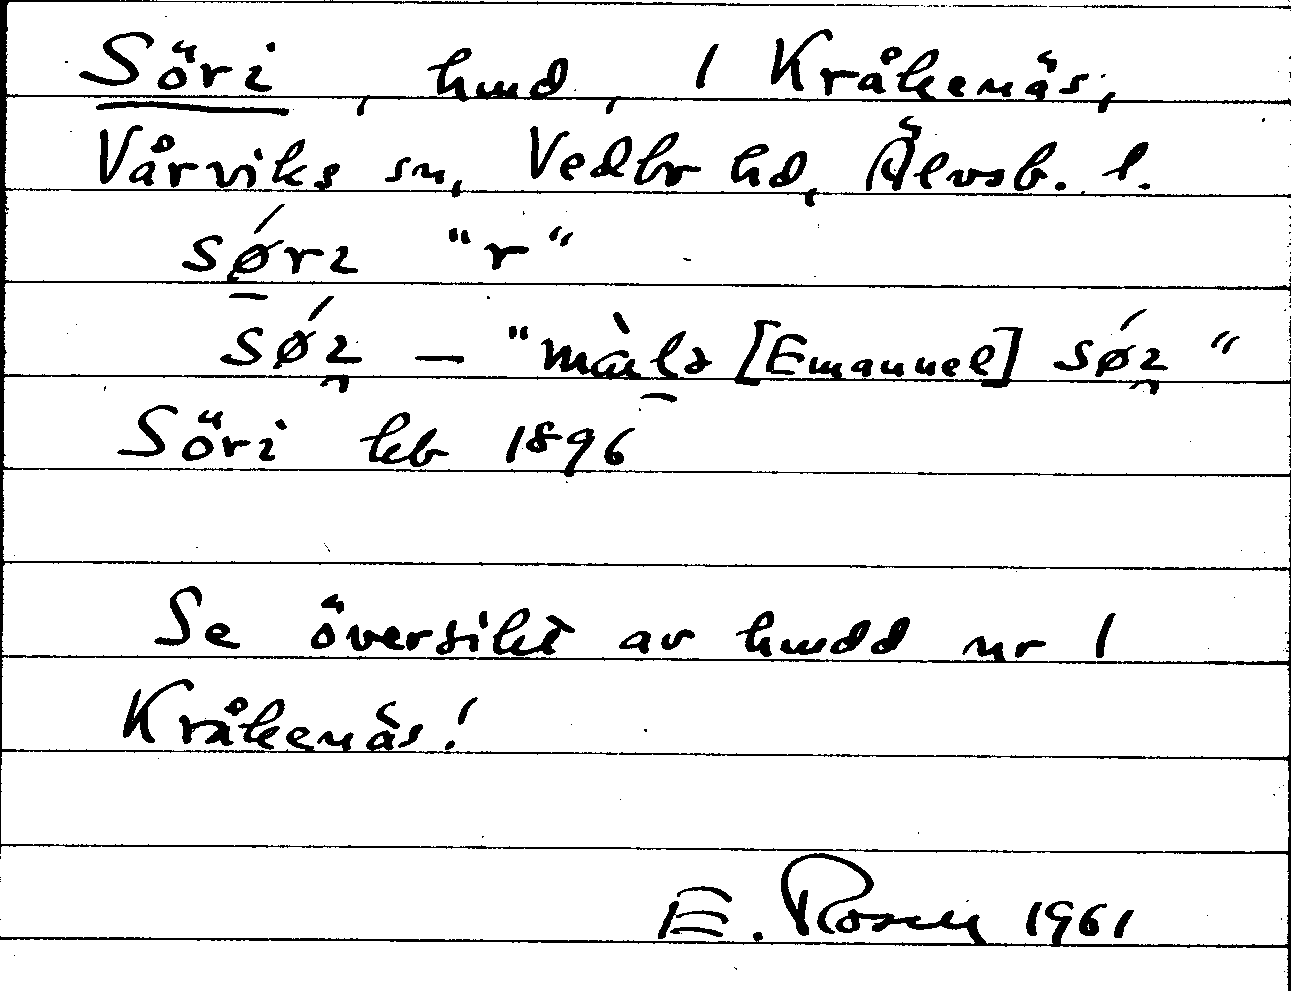 Söri, hmd, 1 Kråkenäs,
Vårviks sn, Vedbo hd, Älvsb. l.
sǿ̱rɪ "r"
sǿɪ̯ — "màḻə [Emanuel] sǿɪ̯"
Söri kb 1896
Se översikt av hmdd nr 1
Kråkenäs!
E. Rosén 1961